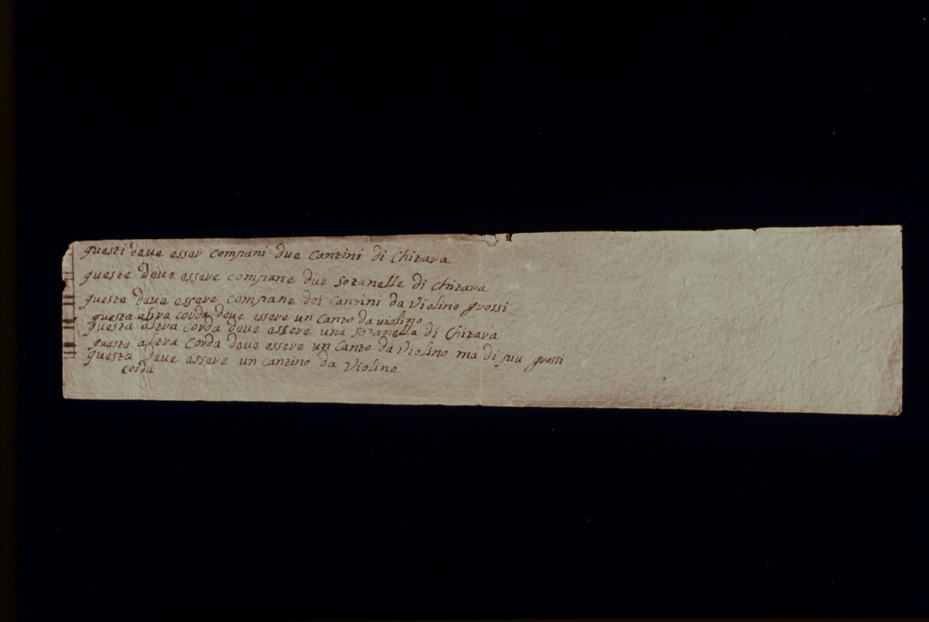 questi deue esser compani due Cantini di Chitara
queste deue essere compane due Sotanelle di Chitara
queste deue essere compane doi Cantini da Violino grossi
questa altra corda deue essere un Canto da violino
questa altra Corda deue essere una sotanella di Chitara
questa altra Corda deue essere un Canto da Violino ma di piu grossi
questa deue essere un cantino da Violino
corda